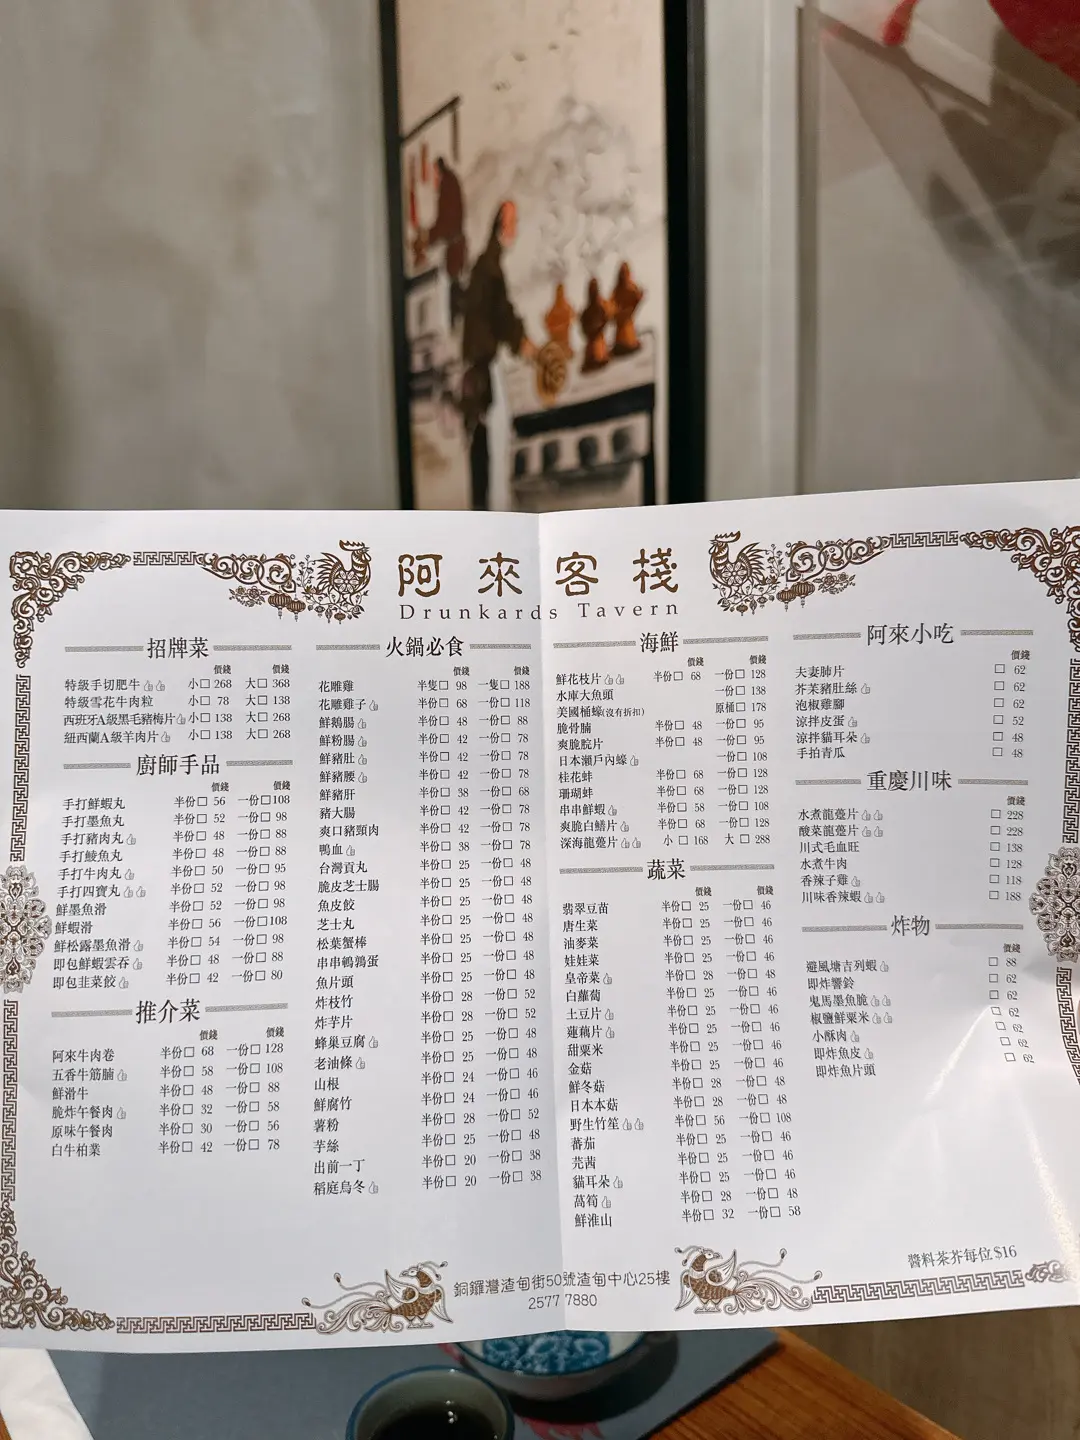 阿來客棧
Drunkards Tavern
招牌菜
價錢 價錢
特級手切肥牛 小□ 268 大□ 368
特級雪花牛肉粒 小□ 78 大□ 138
西班牙A級黑毛豬梅片 小□ 138 大□ 268
紐西蘭A級羊肉片 小□ 138 大□ 268
廚師手品
價錢 價錢
手打鮮蝦丸 半份□ 56 一份□ 108
手打墨魚丸 半份□ 52 一份□ 98
手打豬肉丸 半份□ 48 一份□ 88
手打鯪魚丸 半份□ 48 一份□ 88
手打牛肉丸 半份□ 50 一份□ 95
手打四寶丸 半份□ 52 一份□ 98
鮮墨魚滑 半份□ 52 一份□ 98
鮮蝦滑 半份□ 56 一份□ 108
鮮松露墨魚滑 半份□ 54 一份□ 98
即包鮮蝦雲吞 半份□ 48 一份□ 88
即包韭菜餃 半份□ 42 一份□ 80
推介菜
價錢 價錢
阿來牛肉卷 半份□ 68 一份□ 128
五香牛筋腩 半份□ 58 一份□ 108
鮮滑牛 半份□ 48 一份□ 88
脆炸午餐肉 半份□ 32 一份□ 58
原味午餐肉 半份□ 30 一份□ 56
白牛柏業 半份□ 42 一份□ 78
火鍋必食
價錢 價錢
花雕雞 半隻□ 98 一隻□ 188
花雕雞子 半份□ 68 一份□ 118
鮮鵝腸 半份□ 48 一份□ 88
鮮粉腸 半份□ 42 一份□ 78
鮮豬肚 半份□ 42 一份□ 78
鮮豬腰 半份□ 42 一份□ 78
鮮豬肝 半份□ 38 一份□ 68
豬大腸 半份□ 42 一份□ 78
爽口豬頸肉 半份□ 42 一份□ 78
鴨血 半份□ 38 一份□ 78
台灣貢丸 半份□ 25 一份□ 48
脆皮芝士腸 半份□ 25 一份□ 48
魚皮餃 半份□ 25 一份□ 48
芝士丸 半份□ 25 一份□ 48
松葉蟹棒 半份□ 25 一份□ 48
串串鵪鶉蛋 半份□ 25 一份□ 48
魚片頭 半份□ 25 一份□ 48
炸枝竹 半份□ 28 一份□ 52
炸芋片 半份□ 28 一份□ 52
蜂巢豆腐 半份□ 25 一份□ 48
老油條 半份□ 25 一份□ 48
山根 半份□ 24 一份□ 46
鮮腐竹 半份□ 24 一份□ 46
薯粉 半份□ 28 一份□ 52
芋絲 半份□ 25 一份□ 48
出前一丁 半份□ 20 一份□ 38
稻庭烏冬 半份□ 20 一份□ 38
海鮮
價錢 價錢
鮮花枝片 半份□ 68 一份□ 128
水庫大魚頭 一份□ 138
美國桶蠔(沒有折扣) 原桶□ 178
脆骨腩 半份□ 48 一份□ 95
爽脆脘片 半份□ 48 一份□ 95
日本瀨戶內蠔 一份□ 108
桂花蚌 半份□ 68 一份□ 128
珊瑚蚌 半份□ 68 一份□ 128
串串鮮蝦 半份□ 58 一份□ 108
爽脆白鱔片 半份□ 68 一份□ 128
深海龍躉片 小□ 168 大□ 288
蔬菜
價錢 價錢
翡翠豆苗 半份□ 25 一份□ 46
唐生菜 半份□ 25 一份□ 46
油麥菜 半份□ 25 一份□ 46
娃娃菜 半份□ 25 一份□ 46
皇帝菜 半份□ 28 一份□ 48
白蘿蔔 半份□ 25 一份□ 46
土豆片 半份□ 25 一份□ 46
蓮藕片 半份□ 25 一份□ 46
甜粟米 半份□ 25 一份□ 46
金菇 半份□ 25 一份□ 46
鮮冬菇 半份□ 28 一份□ 48
日本本菇 半份□ 28 一份□ 48
野生竹笙 半份□ 56 一份□ 108
蕃茄 半份□ 25 一份□ 46
芫茜 半份□ 25 一份□ 46
貓耳朵 半份□ 25 一份□ 46
萵筍 半份□ 28 一份□ 48
鮮淮山 半份□ 32 一份□ 58
阿來小吃
價錢
夫妻肺片 □ 62
芥茉豬肚絲 □ 62
泡椒雞腳 □ 62
涼拌皮蛋 □ 52
涼拌貓耳朵 □ 48
手拍青瓜 □ 48
重慶川味
價錢
水煮龍躉片 □ 228
酸菜龍躉片 □ 228
川式毛血旺 □ 138
水煮牛肉 □ 128
香辣子雞 □ 118
川味香辣蝦 □ 188
炸物
價錢
避風塘吉列蝦 □ 88
即炸響鈴 □ 62
鬼馬墨魚脆 □ 62
椒鹽鮮粟米 □ 62
小酥肉 □ 62
即炸魚皮 □ 62
即炸魚片頭 □ 62
醬料茶芥每位$16
銅鑼灣渣甸街50號渣甸中心25樓
2577 7880